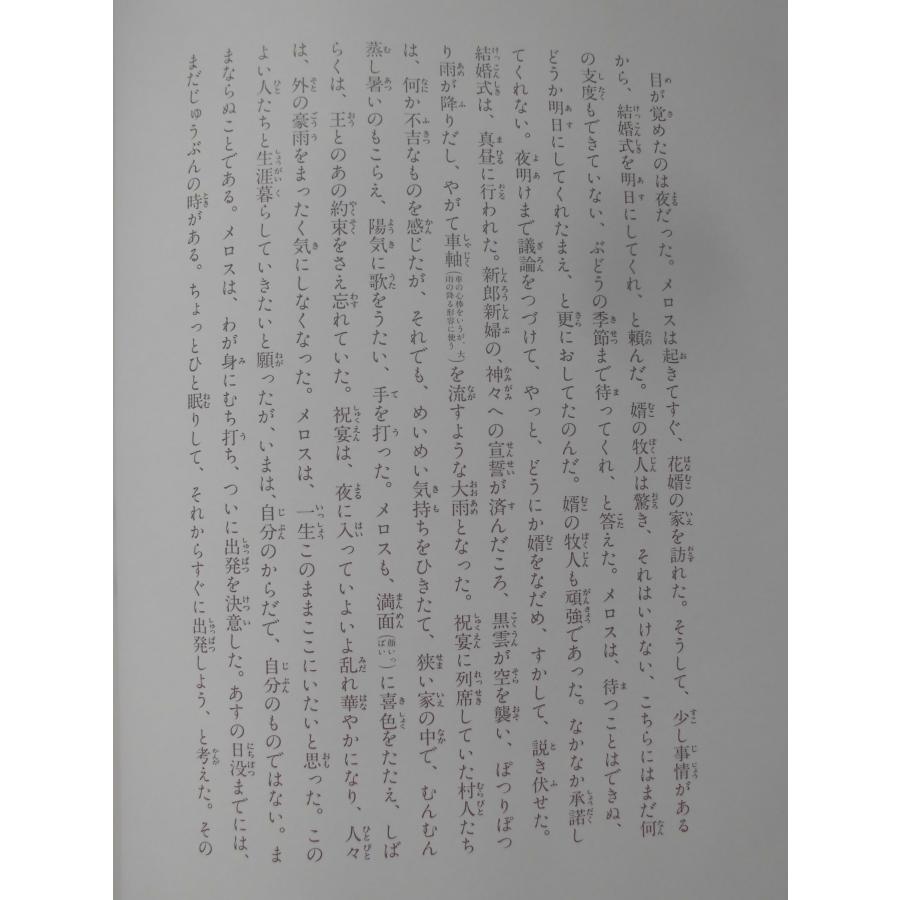 目が覚めたのは夜だった。メロスは起きてすぐ、花婿の家を訪れた。そうして、少し事情がある
から、結婚式を明日にしてくれ、と頼んだ。婿の牧人は驚き、それはいけない、こちらにはまだ何
の支度もできていない、ぶどうの季節まで待ってくれ、と答えた。メロスは、待つことはできぬ、
どうか明日にしてくれたまえ、と更におしてたのんだ。婿の牧人も頑強であった。なかなか承諾し
てくれない。夜明けまで議論をつづけて、やっと、どうにか婿をなだめ、すかして、説き伏せた。
結婚式は、真昼に行われた。新郎新婦の、神々への宣誓が済んだころ、黒雲が空を襲い、ぽつりぽつ
り雨が降りだし、やがて車軸(車の心棒をいうが、大雨の降る形容に使う)を流すような大雨となった。祝宴に列席していた村人たち
は、何か不吉なものを感じたが、それでも、めいめい気持ちをひきたて、狭い家の中で、むんむん
蒸し暑いのもこらえ、陽気に歌をうたい、手を打った。メロスも、満面(顔いっぱい)に喜色をたたえ、しば
らくは、王とのあの約束をさえ忘れていた。祝宴は、夜に入っていよいよ乱れ華やかになり、人々
は、外の豪雨をまったく気にしなくなった。メロスは、一生このままここにいたいと思った。この
よい人たちと生涯暮らしていきたいと願ったが、いまは、自分のからだで、自分のものではない。ま
まならぬことである。メロスは、わが身にむち打ち、ついに出発を決意した。あすの日没までには、
まだじゅうぶんの時がある。ちょっとひと眠りして、それからすぐに出発しよう、と考えた。その